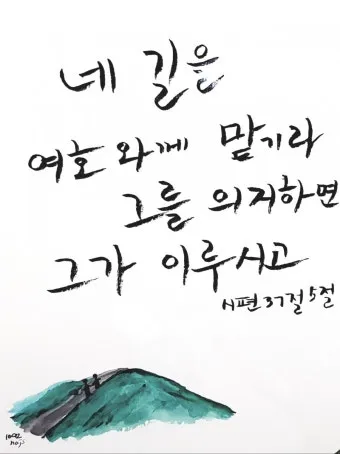 네 길을
여호와께 맡기라
그를 의지하면
그가 이루시고
시편 37절 5절